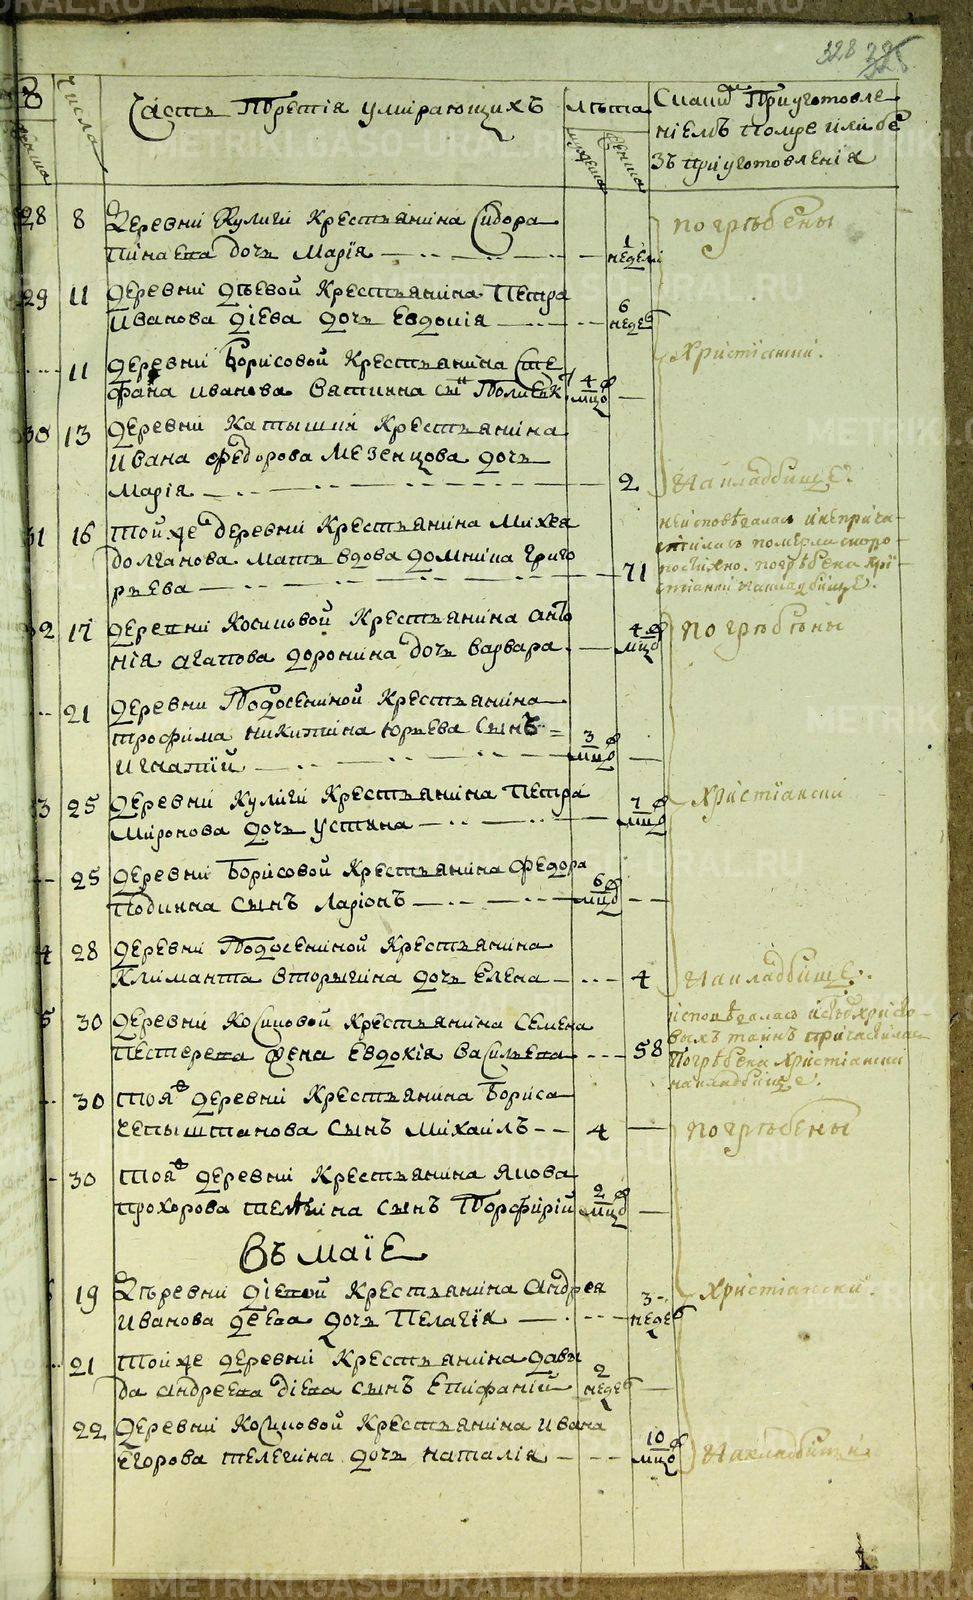 328
Числа
Часть Третія умирающихъ
Лѣта
Спаид Приуготовле
ніемъ помре или бе
зъ приуготовленія
28 8 Деревни Кулиги Крестьянина Сидора
дочь Марія 1 недели
погрѣбены
29 11 Деревни Діевой Крестьянина Петра
Иванова Діева дочь Евдокія 6 недел
11 Деревни Борисовой Крестьянина Сте
фана Иванова Вяткина сынъ 4 мцо
Христіански.
30 13 Деревни Катышки Крестьянина
Ивана Федорова Мезенцова дочь
Марія 2
На кладбище.
31 16 Той же деревни Крестьянина Михея
Долганова мать вдова Домнина Григо
рьева 71
неисповѣдалась и неприча
стилась померла скоро
постижно. погрѣбена Хри
стіански на кладбище.
32 17 Деревни Косиковой Крестьянина Анто
нія Агапова Доронина дочь Варвара 4 мцо
погрѣбѣны
21 Деревни Подосениной Крестьянина
Трофима Никитина Юрьева сынъ
Игнатій 3 мцо
33 25 Деревни Кулиги Крестьянина Петра
Миронова дочь Устина 7 мцо
Христіански
25 Деревни Борисовой Крестьянина Федора
сынъ Ларіонъ 6 мцо
34 28 Деревни Подосениной Крестьянина
Климанта Вторыгина дочь Елена 4
На кладбище.
35 30 Деревни Косиковой Крестьянина Семена
Пестерева жена Евдокія Васильева 58
исповѣдалась и св Христо
выхъ таинъ причастилась
Погрѣбена Христіански
на кладбище.
30 Тоя же деревни Крестьянина Бориса
Чепыштанова сынъ Михаилъ 4
погрѣбены
30 Тоя же деревни Крестьянина Якова
Прохорова Телегина сынъ Порфирій 2 мцо
Въ маіе
19 Деревни Діевой Крестьянина Андрея
Иванова Деева дочь Пелагія 3 недел
Христіански.
21 Той же деревни Крестьянина Давы
да Андреева Діева сынъ Епифаній 2 недел
22 Деревни Косиковой Крестьянина Ивана
Егорова Телегина дочь Наталія 10 мцо
На кладбищи
METRIKI.GASO-URAL.RU